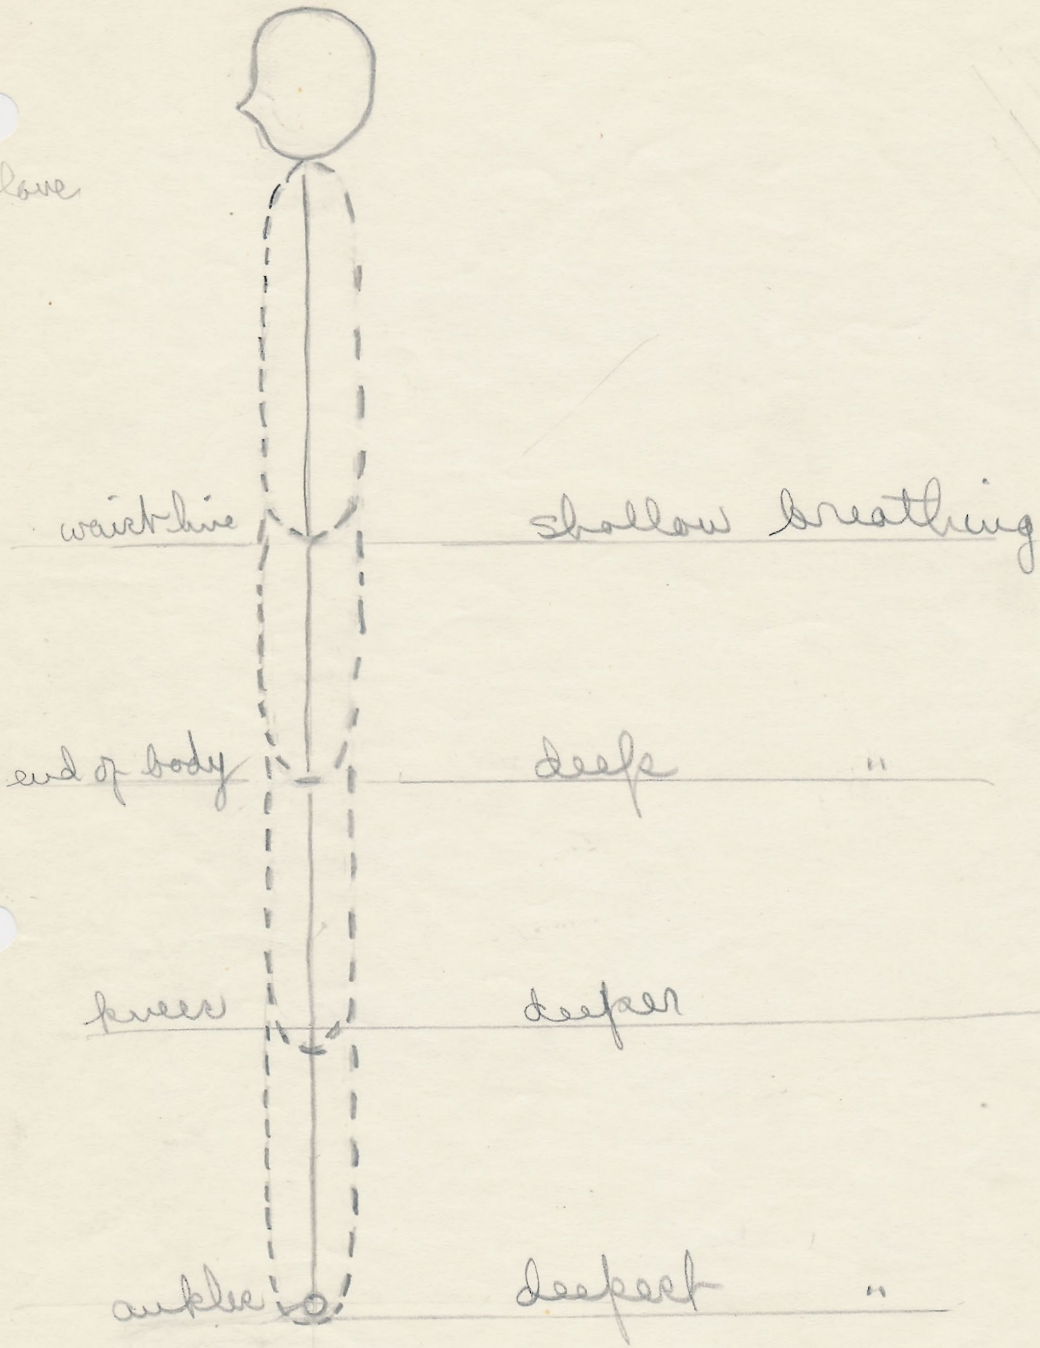 love
waistline shallow breathing
end of body deep "
knees deeper
ankles deepest "